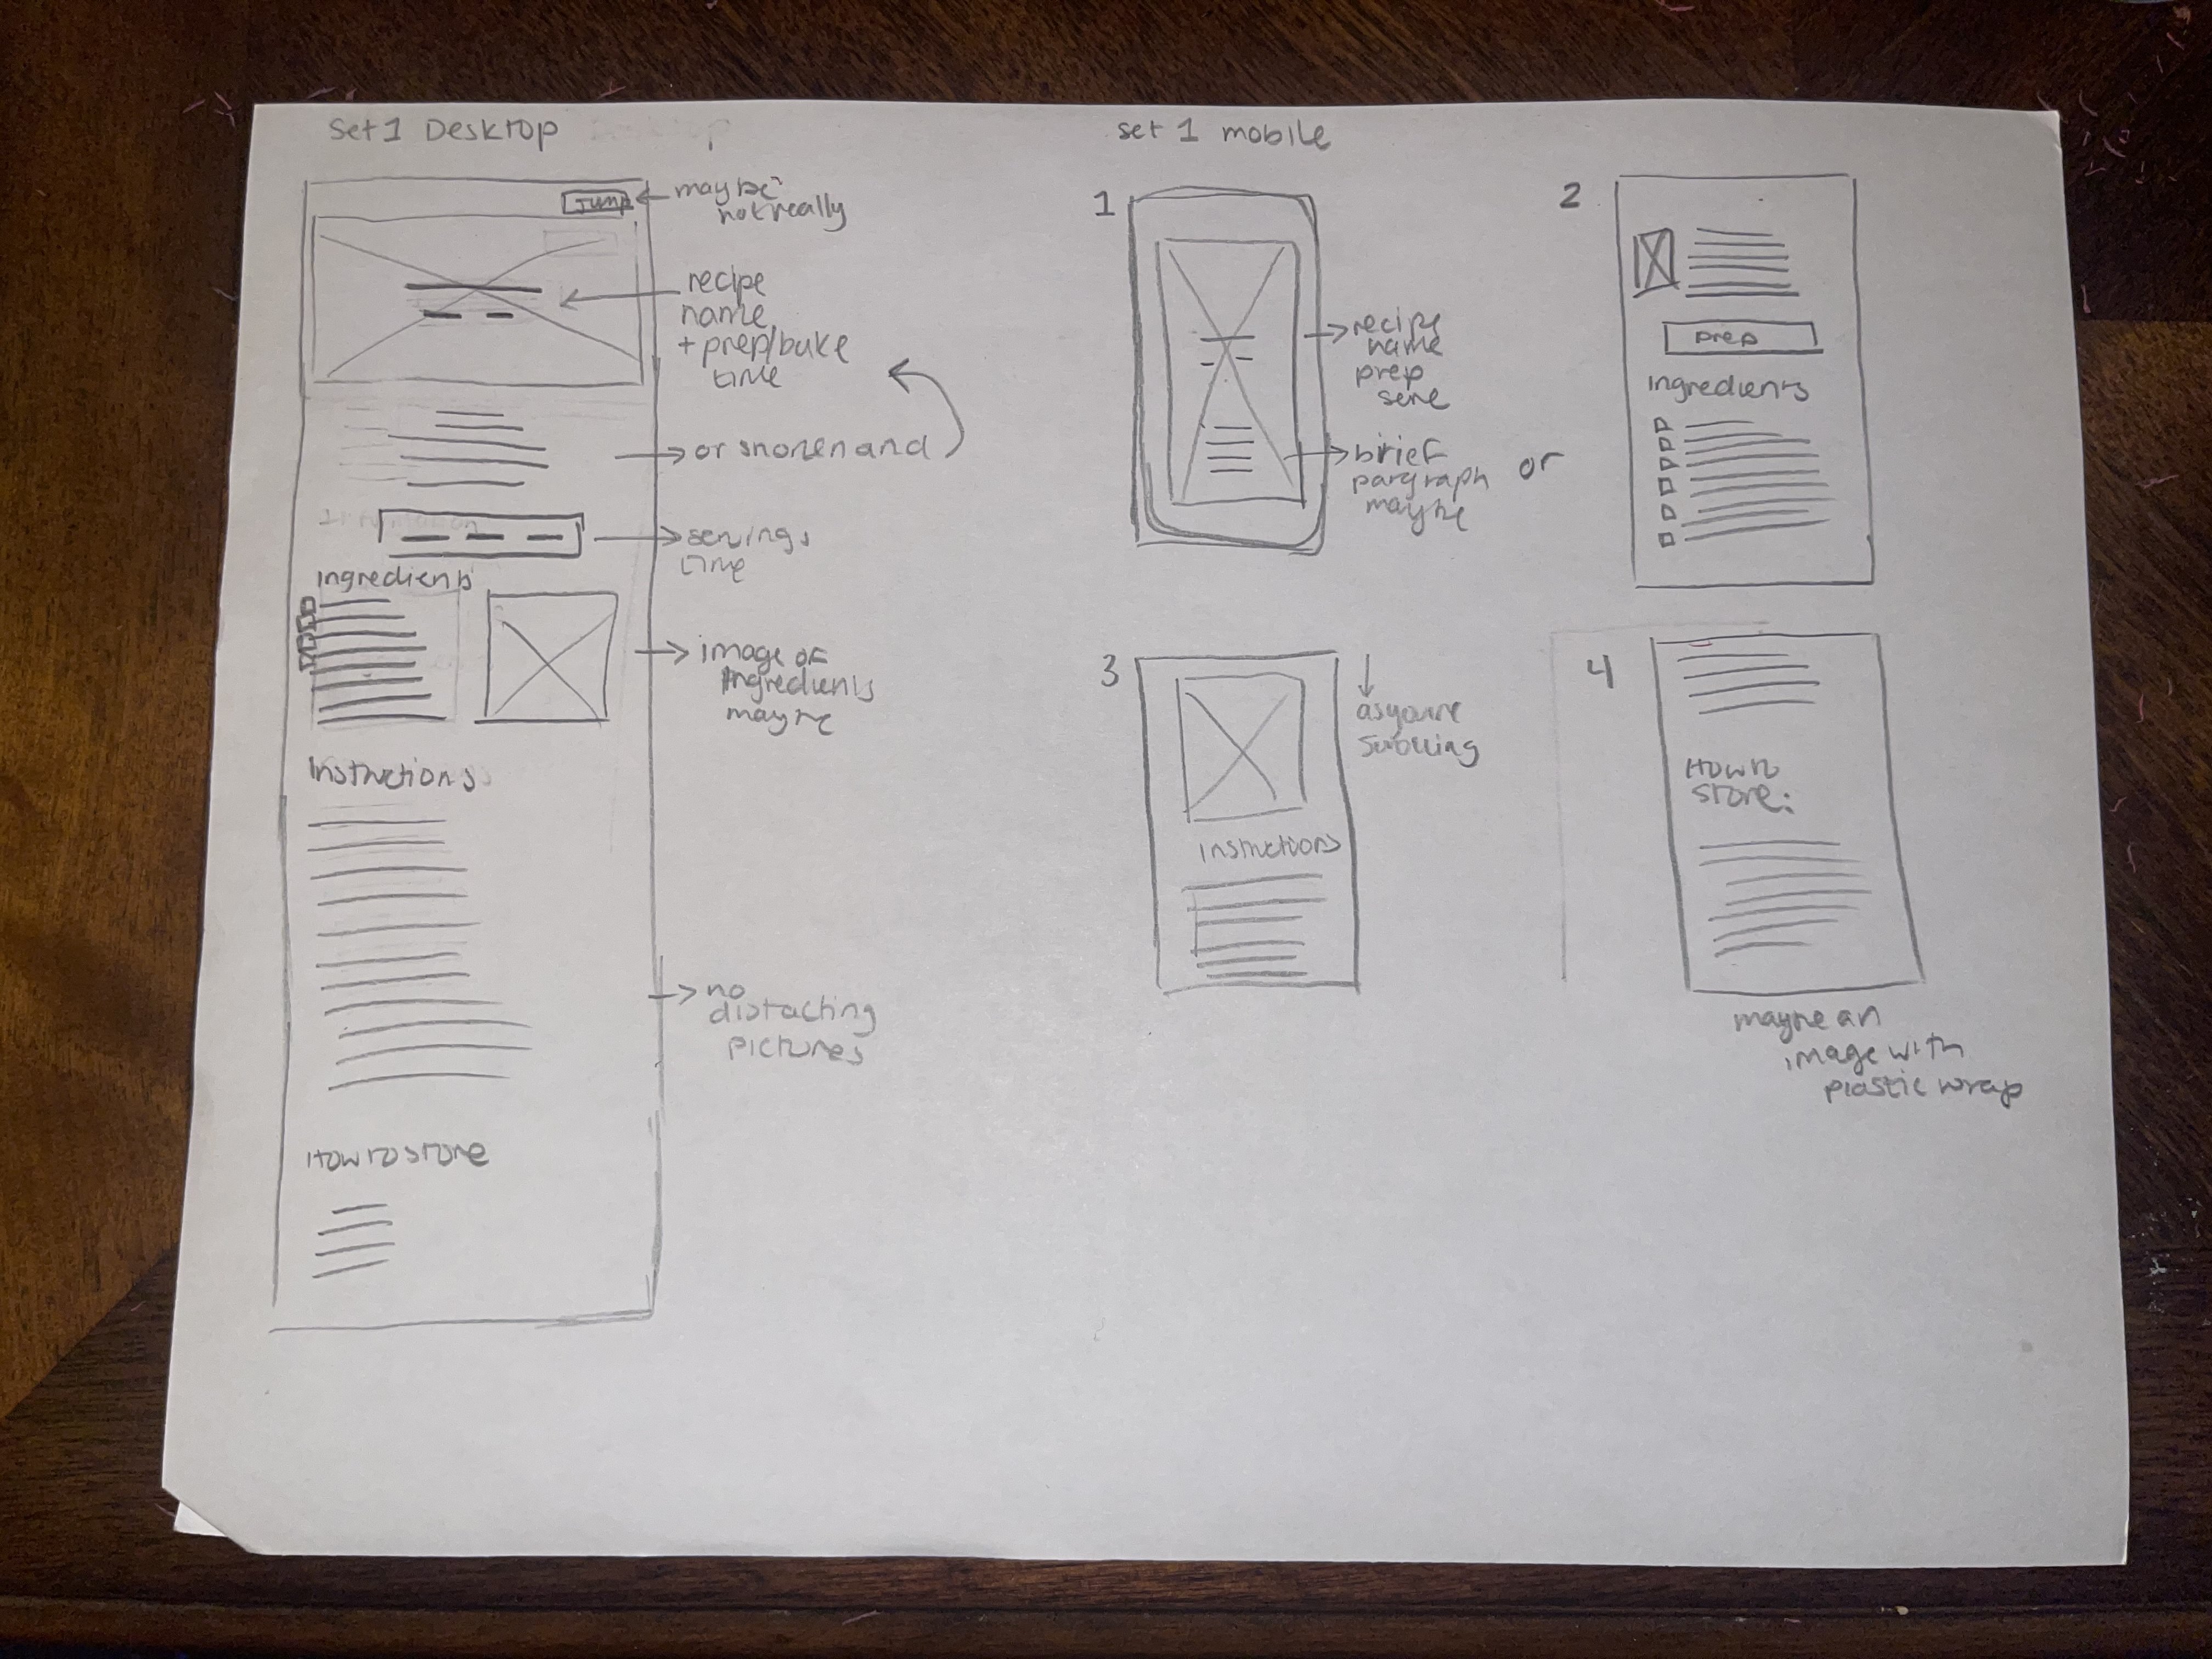 Set 1 Desktop
Jump
maybe
not really
recipe
name
+ prep/bake
time
or shorten and
servings
time
Ingredients
image of
Ingredients
maybe
Instructions
no
distacting
pictures
How to store
set 1 mobile
1
recipe
name
prep
brief
pargraph
maybe
or
2
prep
Ingredients
3
Instructions
4
How to
store:
maybe an
image with
plastic wrap